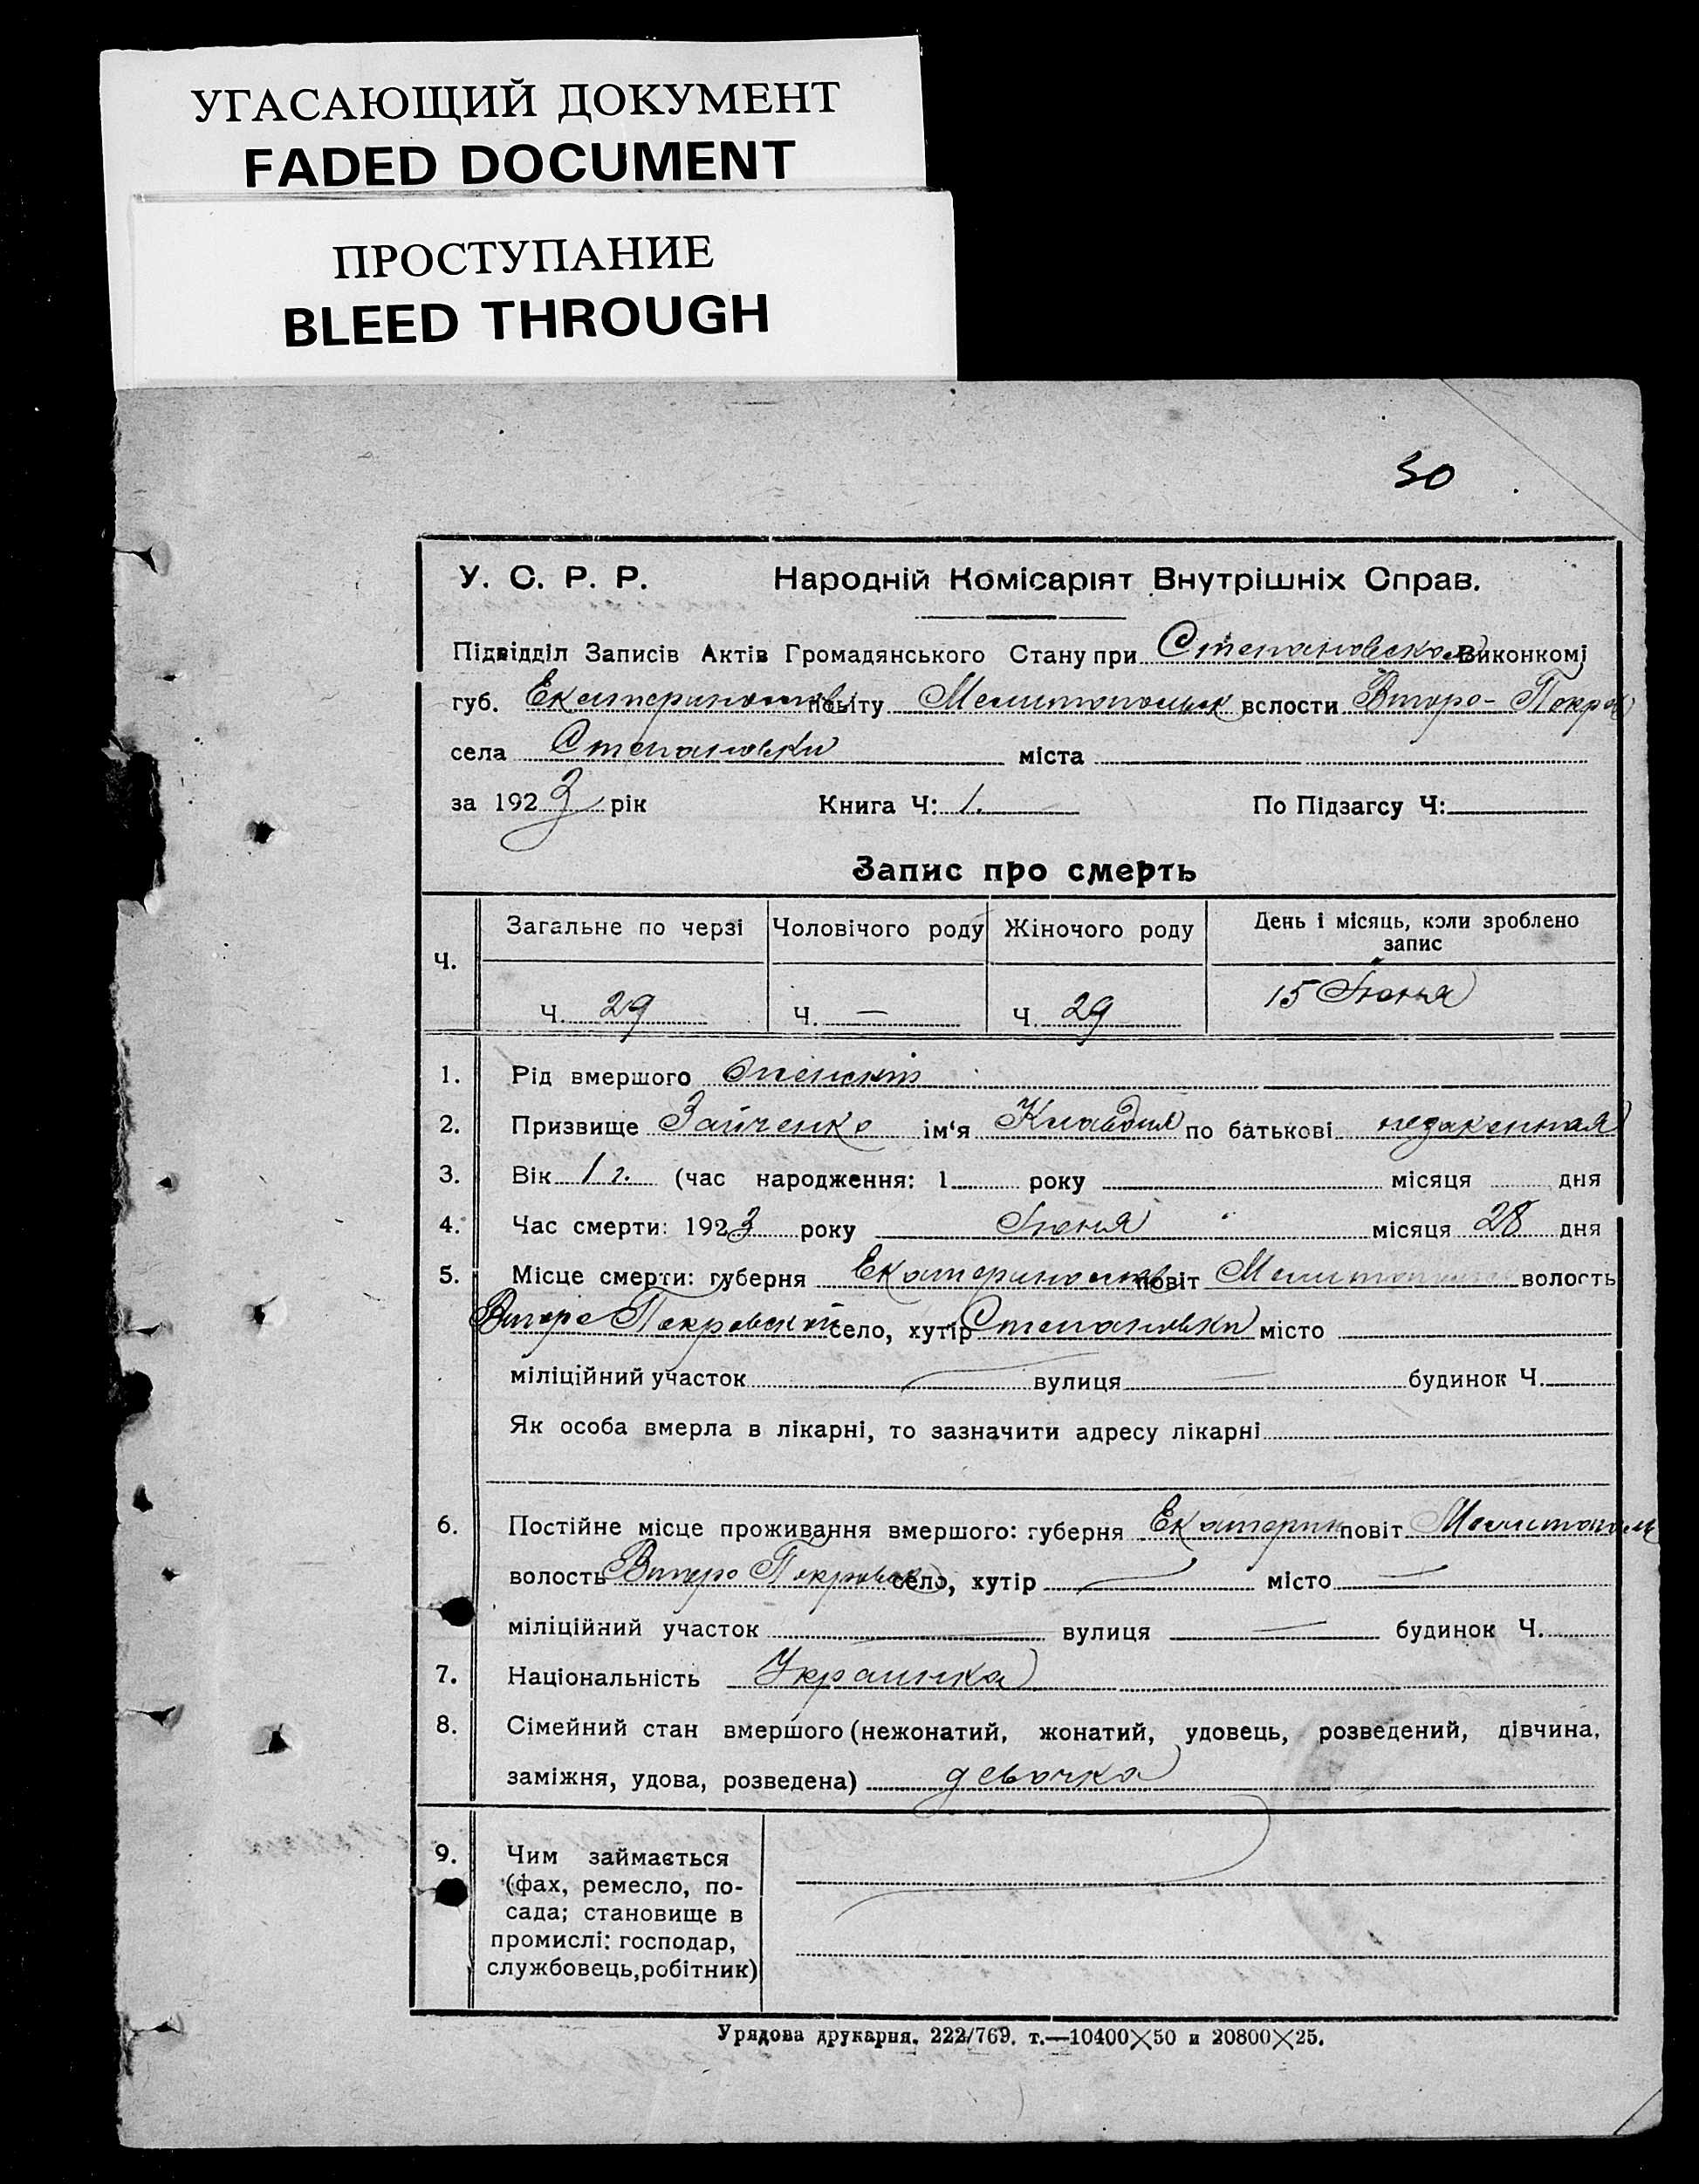 УГАСАЮЩИЙ ДОКУМЕНТ
FADED DOCUMENT
ПРОСТУПАНИЕ
BLEED THROUGH
30
У. С. Р. Р. Народній Комісаріят Внутрішніх Справ.
Підвідділ Записів Актів Громадянського Стану при Степановском Виконкомі
губ. Екатеринослав повіту Мелитопольск вслости Второ-Покров
села Степановки міста
за 1923 рік Книга Ч: 1. По Підзагсу Ч:
Запис про смерть
Ч. Загальне по черзі Чоловічого роду Жіночого роду День і місяць, коли зроблено запис
Ч. 29 Ч. — Ч. 29 15 Июня
1. Рід вмершого женский
2. Призвище Зайченко ім'я Клавдия по батькові
3. Вік 1 г. (час народження: 1 року місяця дня
4. Час смерти: 1923 року Июня місяця 28 дня
5. Місце смерти: губерня Екатеринослав повіт Мелитополь волость
Второ Покровской село, хутір Степановки місто
міліційний участок вулиця будинок Ч.
Як особа вмерла в лікарні, то зазначити адресу лікарні
6. Постійне місце проживання вмершого: губерня Екатерин повіт Мелитополь
волость Второ Покровск село, хутір — місто —
міліційний участок — вулиця — будинок Ч.
7. Національність Украинка
8. Сімейний стан вмершого (нежонатий, жонатий, удовець, розведений, дівчина,
заміжня, удова, розведена) девочка
9. Чим займається
(фах, ремесло, по-
сада; становище в
промислі: господар,
службовець, робітник)
Урядова друкарня. 222/769. т.—10400×50 и 20800×25.